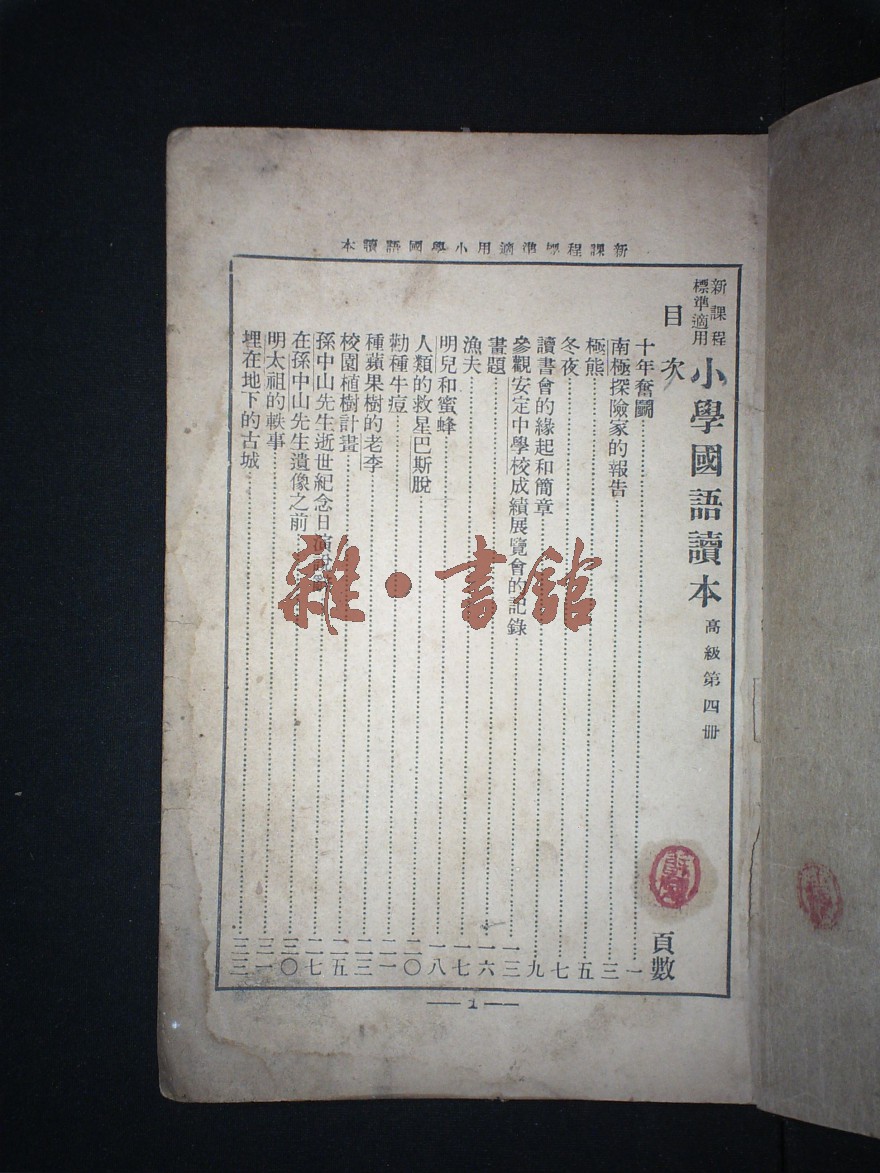 新課程標準適用小學國語讀本
新課程標準適用 小學國語讀本 高級第四冊
目次 頁數
十年奮鬭……一
南極探險家的報告……三
極熊……五
冬夜……七
讀書會的緣起和簡章……九
參觀安定中學校成績展覽會的記錄……一三
畫題……一六
漁夫……一七
明兒和蜜蜂……一八
人類的救星巴斯脫……二〇
勸種牛痘……二一
種蘋果樹的老李……二三
校園植樹計畫……二五
孫中山先生逝世紀念日演說……二七
在孫中山先生遺像之前……三〇
明太祖的軼事……三一
埋在地下的古城……三三
— 1 —
雜·書館